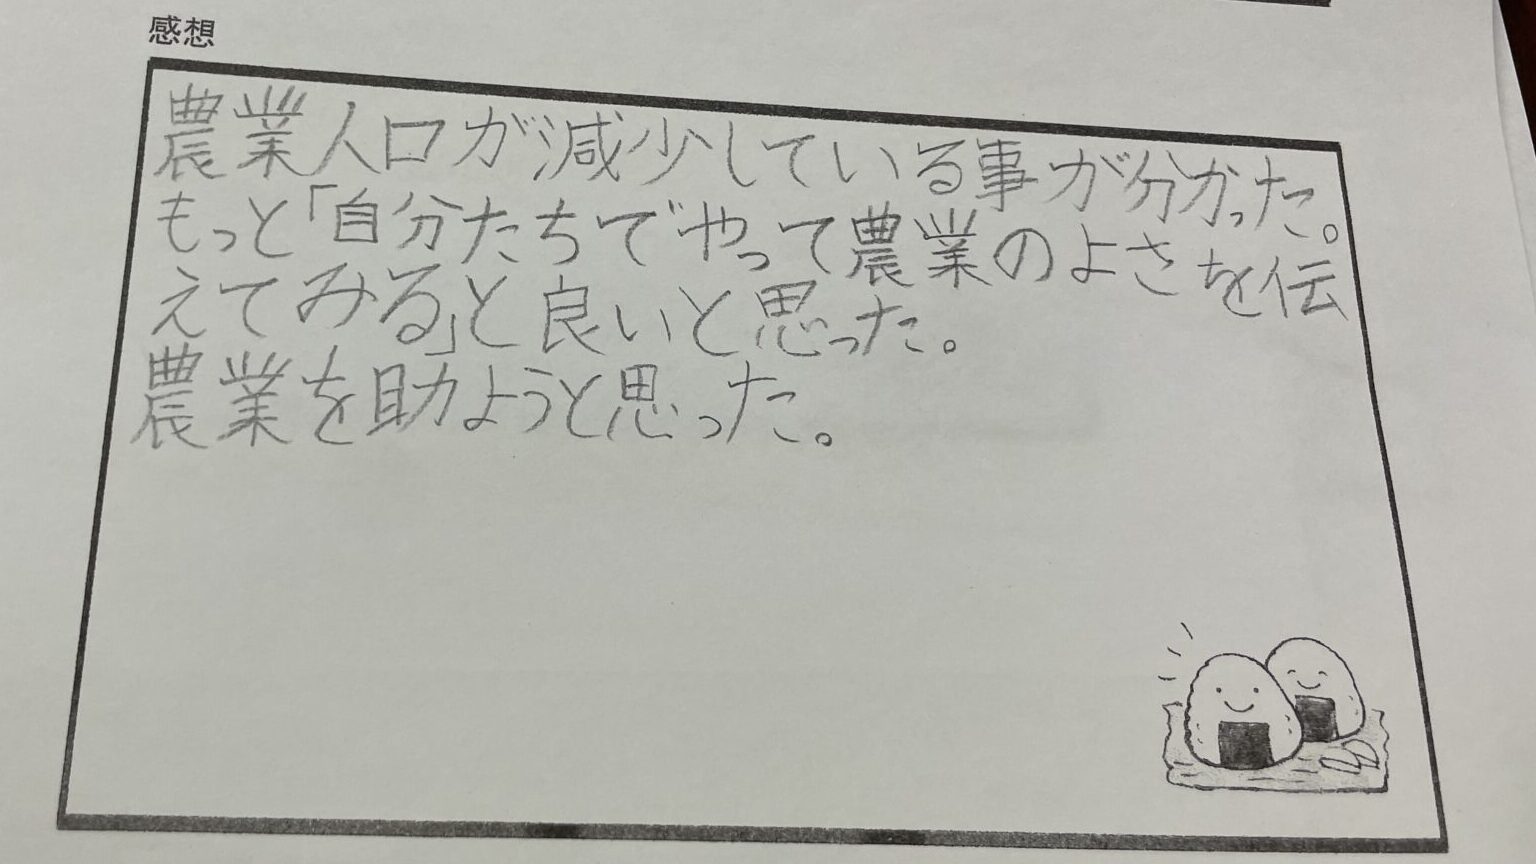 感想
農業人口が減少している事が分かった。
もっと「自分たちでやって農業のよさを伝
えてみる」と良いと思った。
農業を助ようと思った。